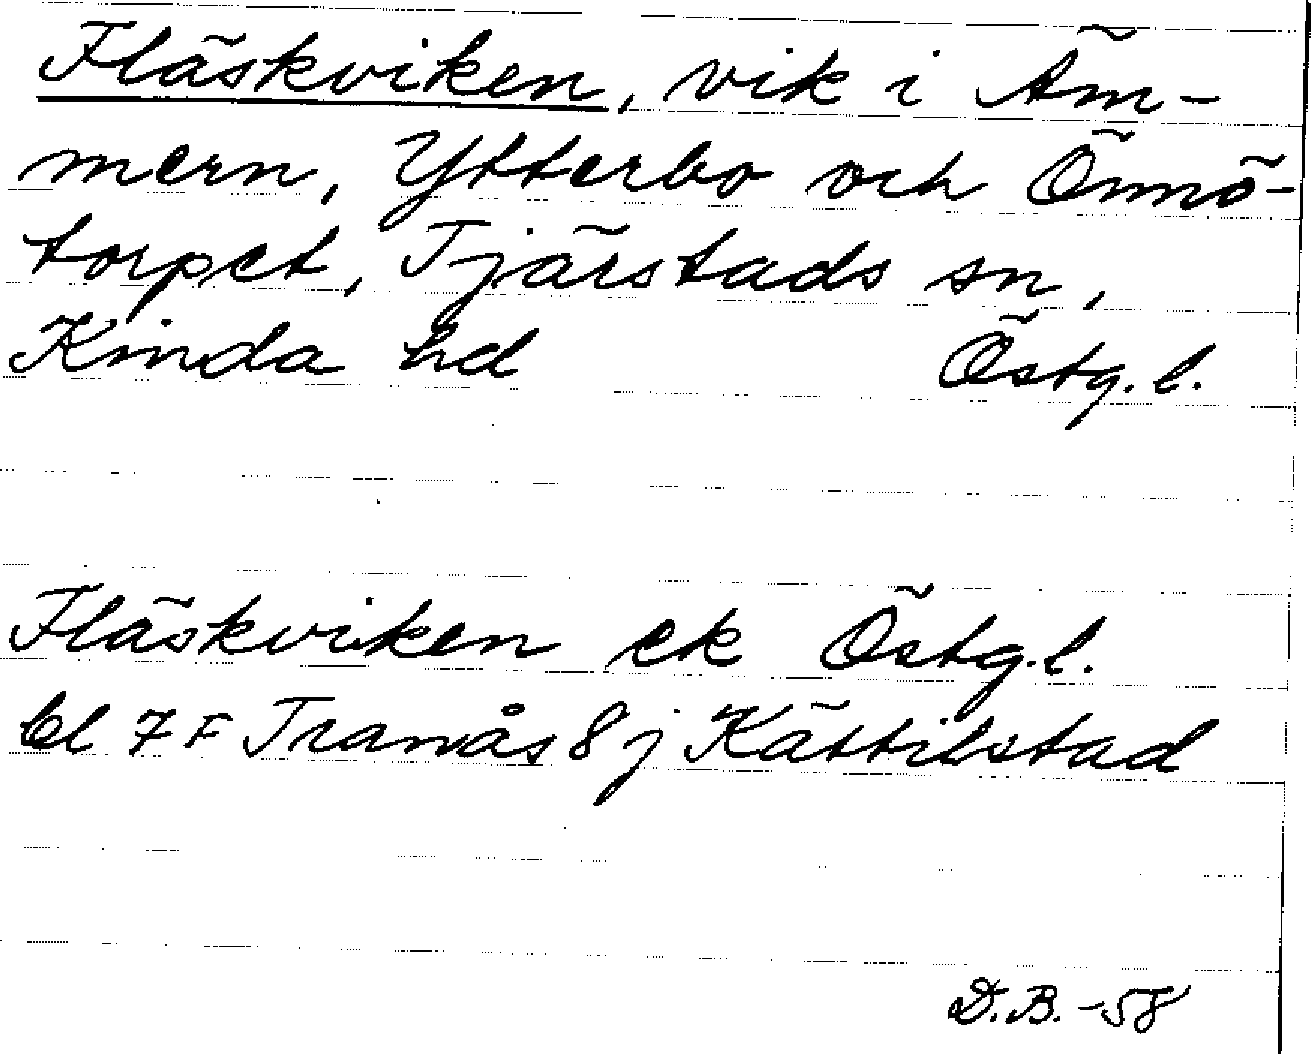 Fläskviken, vik i Äm-
mern, Ytterbo och Önnö-
torpet, Tjärstads sn,
Kinda hd Östg. l.
Fläskviken ek Östg. l.
bl 7 F Tranås 8 j Kättilstad
D.B. -58